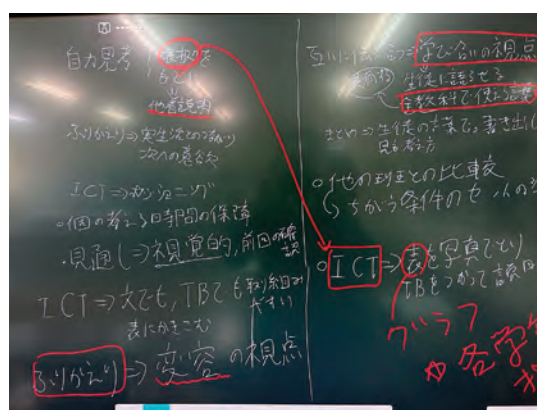 自力思考
根拠を
もとに
↓
他者説明
ふりかえり⇒実生活とのつながり
次への意欲
ICT⇒ポジショニング
・個の考える時間の保障
・見通し⇒視覚的,前回の確認
ICT⇒文でも,TBでも取り組みやすい
表にかきこむ
ふりかえり⇒変容の視点
互いに伝え合う⇒学び合いの視点
生徒に語らせる
全教科で使える言葉
まとめ⇒生徒の言葉で。書き出し
見方考え方
○他の班との比較
ちがう条件のセットの
○ICT⇒表を写真でとり
TBをつかって説明
グラフ
☆各学